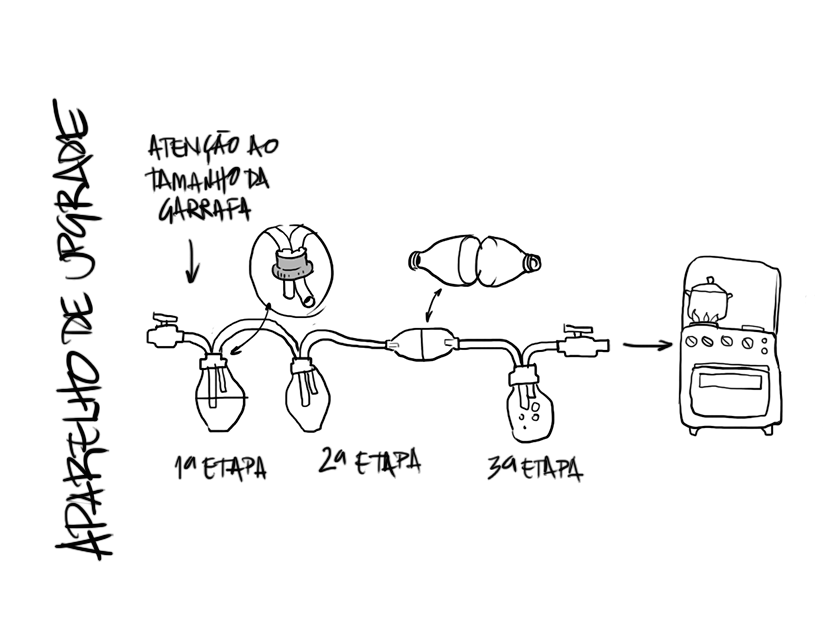 APARELHO DE UPGRADE
ATENÇÃO AO
TAMANHO DA
GARRAFA
1ª ETAPA
2ª ETAPA
3ª ETAPA